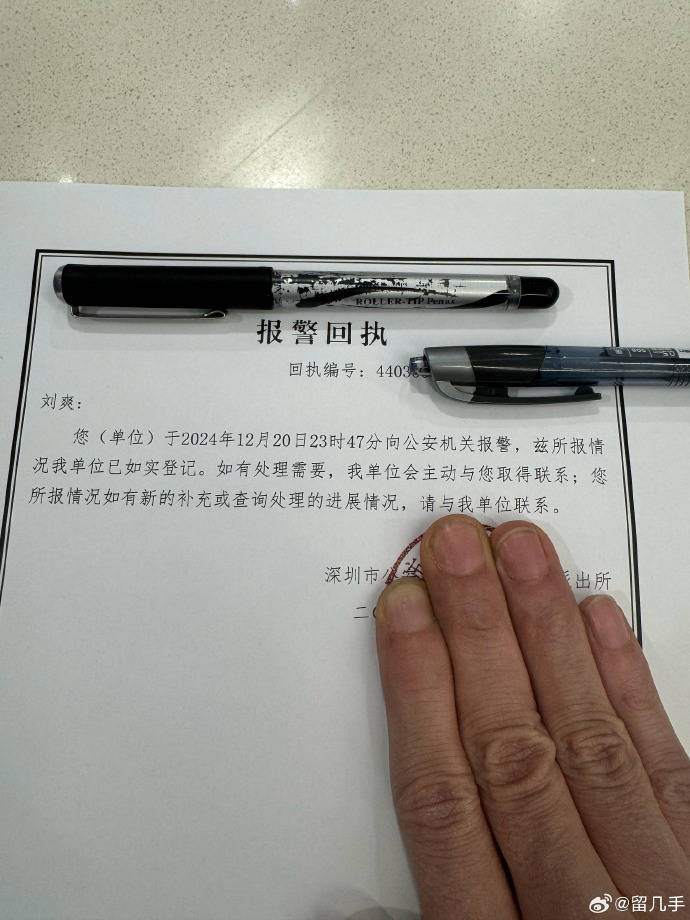 ROLLER-TIP Pen
报警回执
回执编号：4403
刘爽：
您（单位）于2024年12月20日23时47分向公安机关报警，兹所报情
况我单位已如实登记。如有处理需要，我单位会主动与您取得联系；您
所报情况如有新的补充或查询处理的进展情况，请与我单位联系。
深圳市公 出所
二
@留几手